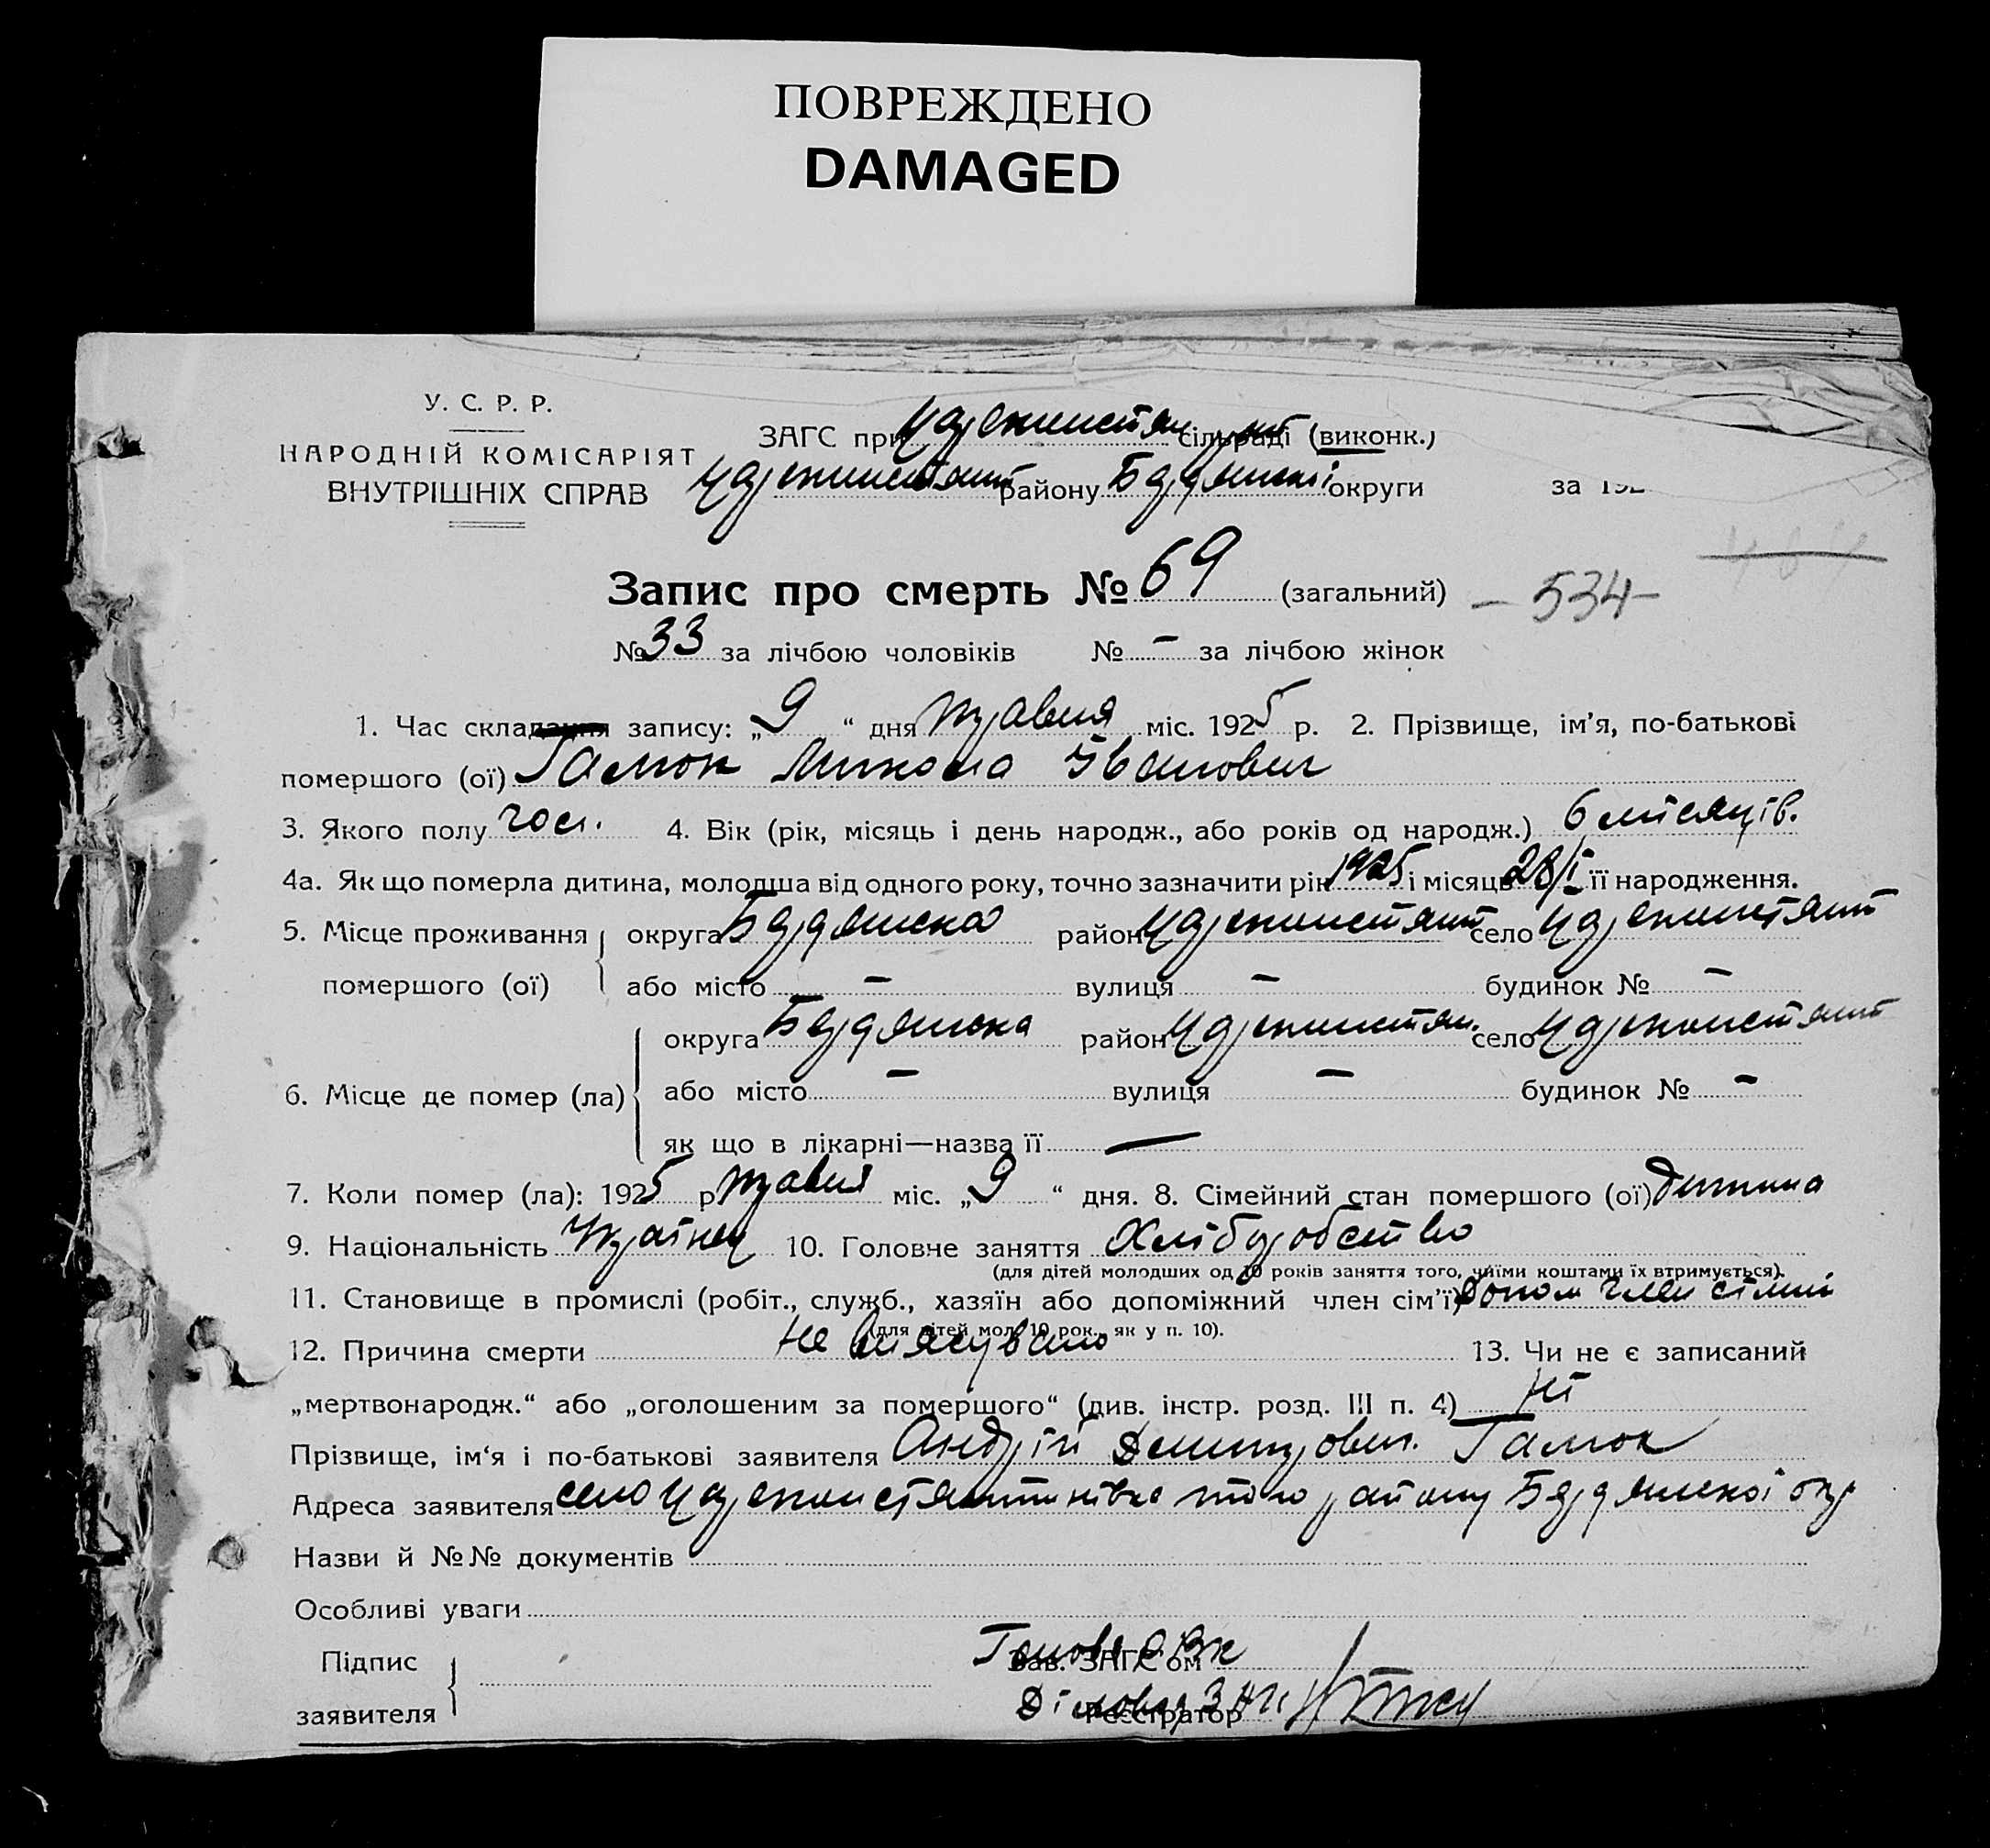 ПОВРЕЖДЕНО
DAMAGED
У. С. Р. Р.
НАРОДНІЙ КОМІСАРІЯТ
ВНУТРІШНІХ СПРАВ
ЗАГС при Царекостян сільраді (виконк.)
району Бердянської округи
за 192
Запис про смерть № 69 (загальний)
– 534 –
№ 33 за лічбою чоловіків № – за лічбою жінок
1. Час складання запису: „ 9 “ дня травня міс. 1925 р. 2. Прізвище, ім’я, по-батькові
помершого (ої) Гамон Микола Іванович
3. Якого полу чол. 4. Вік (рік, місяць і день народж., або років од народж.) 6 місяців.
4а. Як що померла дитина, молодша від одного року, точно зазначити рік 1925 і місяць 28/I її народження.
5. Місце проживання помершого (ої) округа Бердянська район село
або місто – вулиця – будинок № –
6. Місце де помер (ла) округа Бердянська район село
або місто – вулиця – будинок № –
як що в лікарні—назва її —
7. Коли помер (ла): 1925 р травня міс. „ 9 “ дня. 8. Сімейний стан помершого (ої) дитина
9. Національність Українец 10. Головне заняття Хліборобство
(для дітей молодших од 10 років заняття того, чиїми коштами їх втримується).
11. Становище в промислі (робіт., служб., хазяїн або допоміжний член сім’ї) допом член сімї
(для дітей мол. 10 рок., як у п. 10).
12. Причина смерти не 13. Чи не є записаний
„мертвонародж.“ або „оголошеним за помершого“ (див. інстр. розд. III п. 4) ні
Прізвище, ім‘я і по-батькові заявителя Андрій Гамон
Адреса заявителя село того району Бердянської окр
Назви й №№ документів
Особливі уваги
Підпис заявителя
Зав. ЗАГС‘ом
Реєстратор